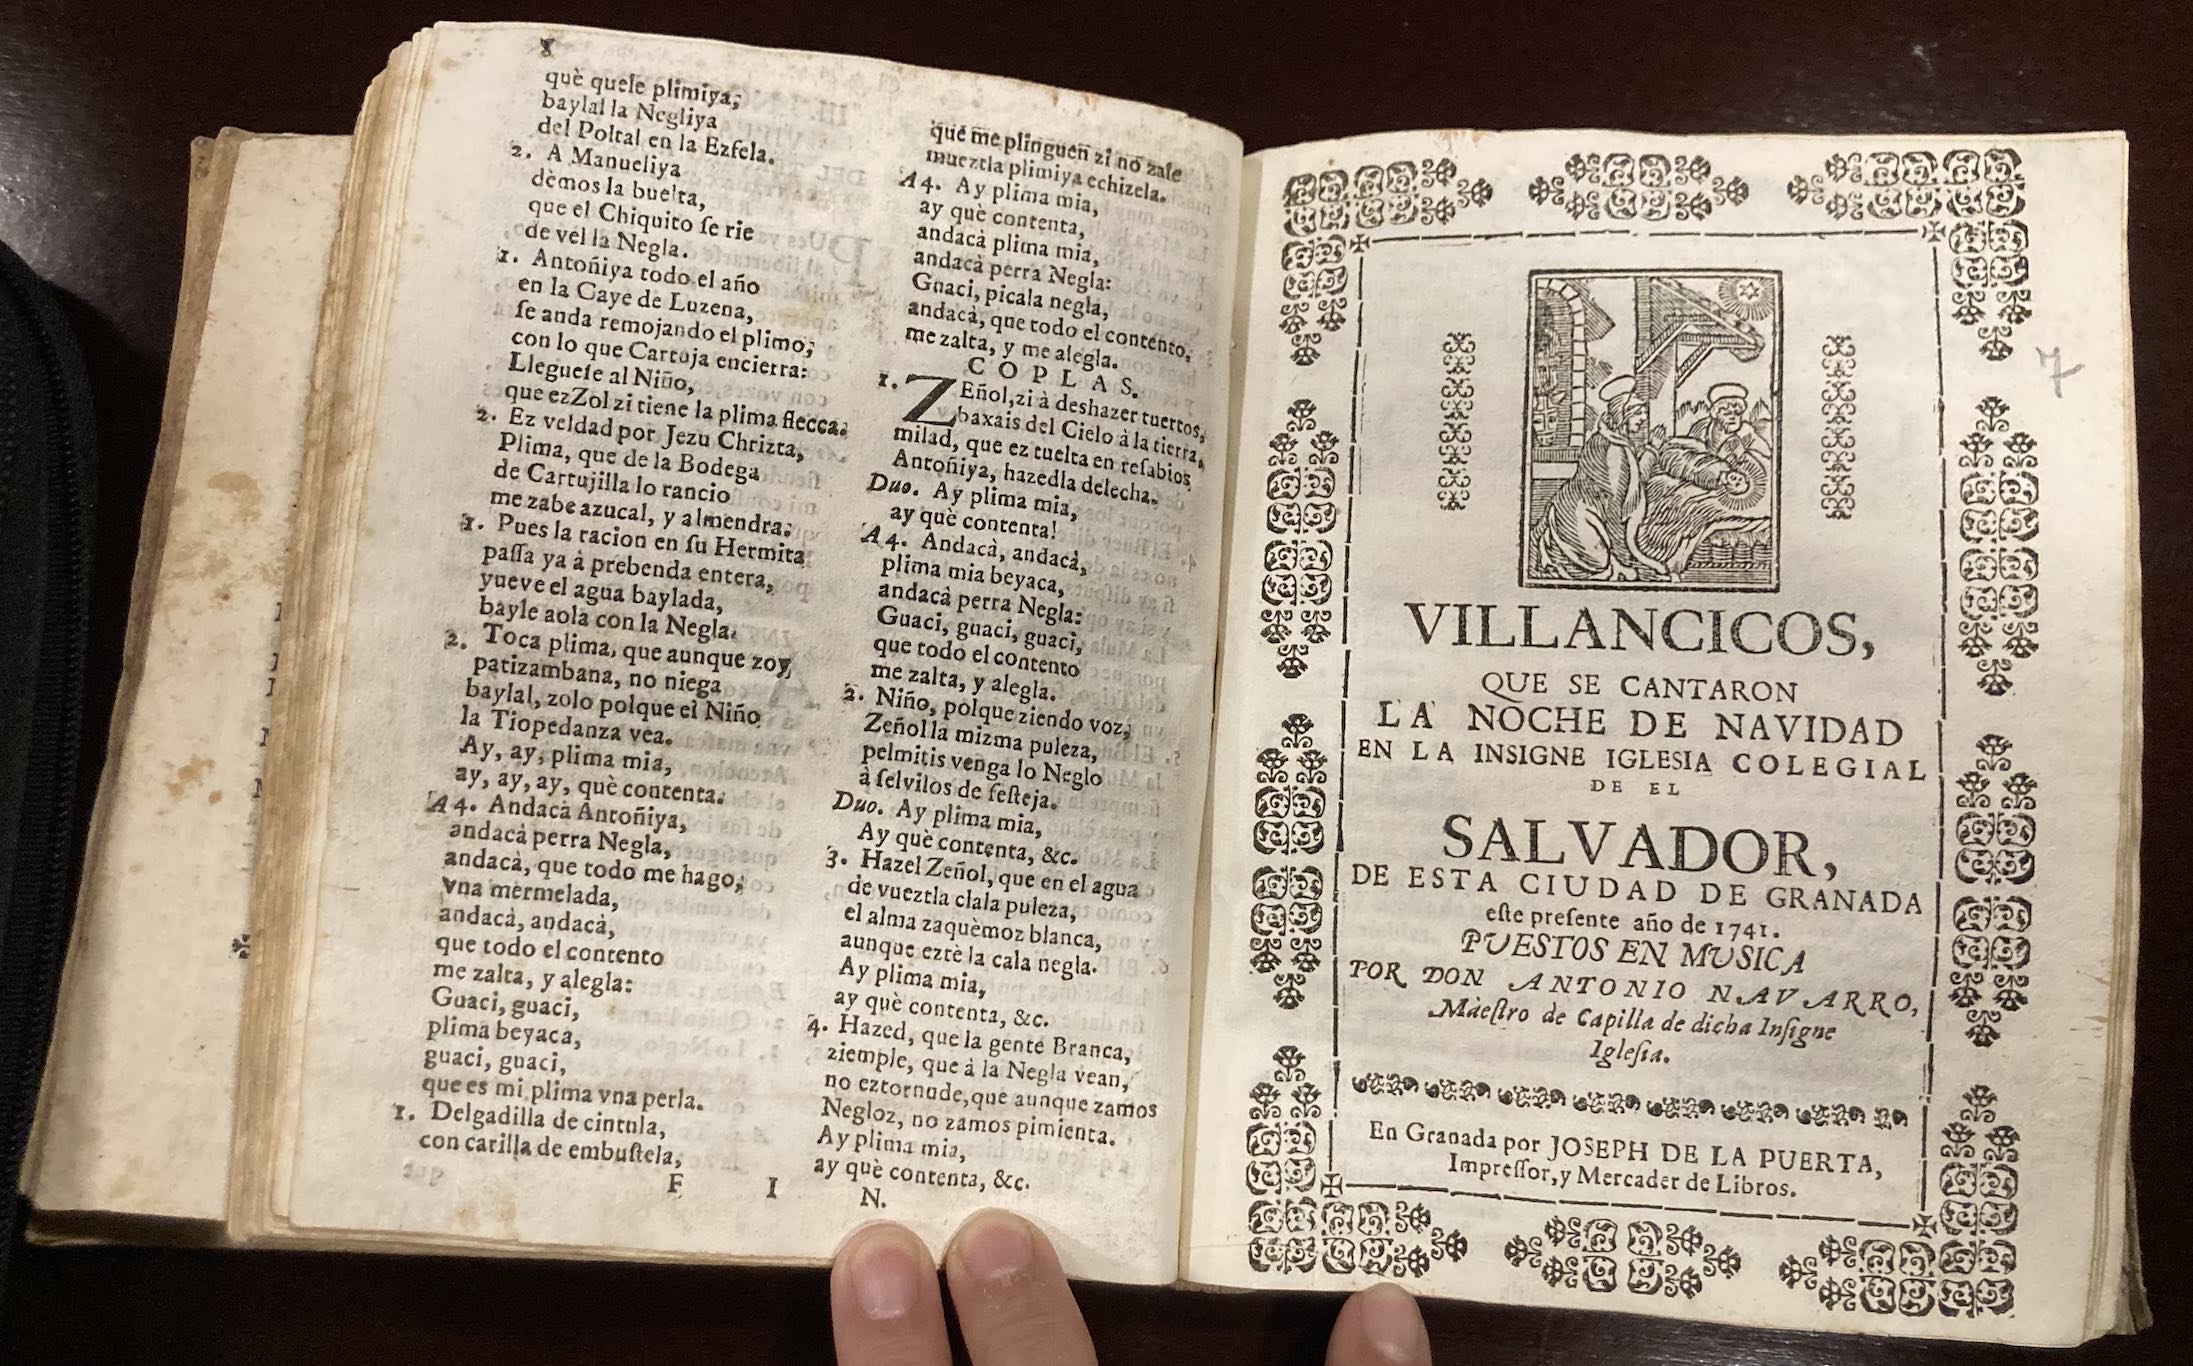 8
què quele plimiya;
baylal la Negliya
del Poltal en la Ezfela.
2. A Manueliya
dèmos la buelta,
que el Chiquito ſe rie
de vel la Negla.
1. Antoñiya todo el año
en la Caye de Luzena,
ſe anda remojando el plimo;
con lo que Cartuja encierra:
Llegueſe al Niño,
que ez Zol zi tiene la plima flecca.
2. Ez veldad por Jezu Chrizta,
Plima, que de la Bodega
de Cartujilla lo rancio
me zabe azucal, y almendra:
1. Pues la racion en ſu Hermita
paſſa ya à prebenda entera,
yueve el agua baylada,
bayle aola con la Negla.
2. Toca plima, que aunque zoy,
patizambana, no niega
baylal, zolo polque el Niño
la Tiopedanza vea.
Ay, ay, plima mia,
ay, ay, ay, què contenta.
A 4. Andacà Antoñiya,
andacà perra Negla,
andacà, que todo me hago;
vna mermelada,
andacà, andacà,
que todo el contento
me zalta, y alegla:
Guaci, guaci,
plima beyaca,
guaci, guaci,
que es mi plima vna perla.
1. Delgadilla de cintula,
con carilla de embuſtela,
que me plinguen zi no zale
mueztla plimiya echizela.
A 4. Ay plima mia,
ay què contenta,
andacà plima mia,
andacà perra Negla:
Guaci, picala negla,
andacà, que todo el contento,
me zalta, y me alegla.
COPLAS.
1. ZEñol, zi à deshazer tuertos,
baxais del Cielo à la tierra,
milad, que ez tuelta en reſabios
Antoñiya, hazedla delecha.
Duo. Ay plima mia,
ay què contenta!
A 4. Andacà, andacà,
plima mia beyaca,
andacà perra Negla:
Guaci, guaci, guaci,
que todo el contento
me zalta, y alegla.
2. Niño, polque ziendo voz,
Zeñol la mizma puleza,
pelmitis venga lo Neglo
à ſelvilos de feſteja.
Duo. Ay plima mia,
Ay què contenta, &c.
3. Hazel Zeñol, que en el agua
de vueztla clala puleza,
el alma zaquèmoz blanca,
aunque eztè la cala negla.
Ay plima mia,
ay què contenta, &c.
4. Hazed, que la gente Branca,
ziemple, que à la Negla vean,
no eztornude, que aunque zamos
Negloz, no zamos pimienta.
Ay plima mia,
ay què contenta, &c.
F I N.
7
VILLANCICOS,
QUE SE CANTARON
LA NOCHE DE NAVIDAD
EN LA INSIGNE IGLESIA COLEGIAL
DE EL
SALVADOR,
DE ESTA CIUDAD DE GRANADA
eſte preſente año de 1741.
PUESTOS EN MUSICA
POR DON ANTONIO NAVARRO,
Maeſtro de Capilla de dicha Inſigne
Igleſia.
En Granada por JOSEPH DE LA PUERTA,
Impreſſor, y Mercader de Libros.